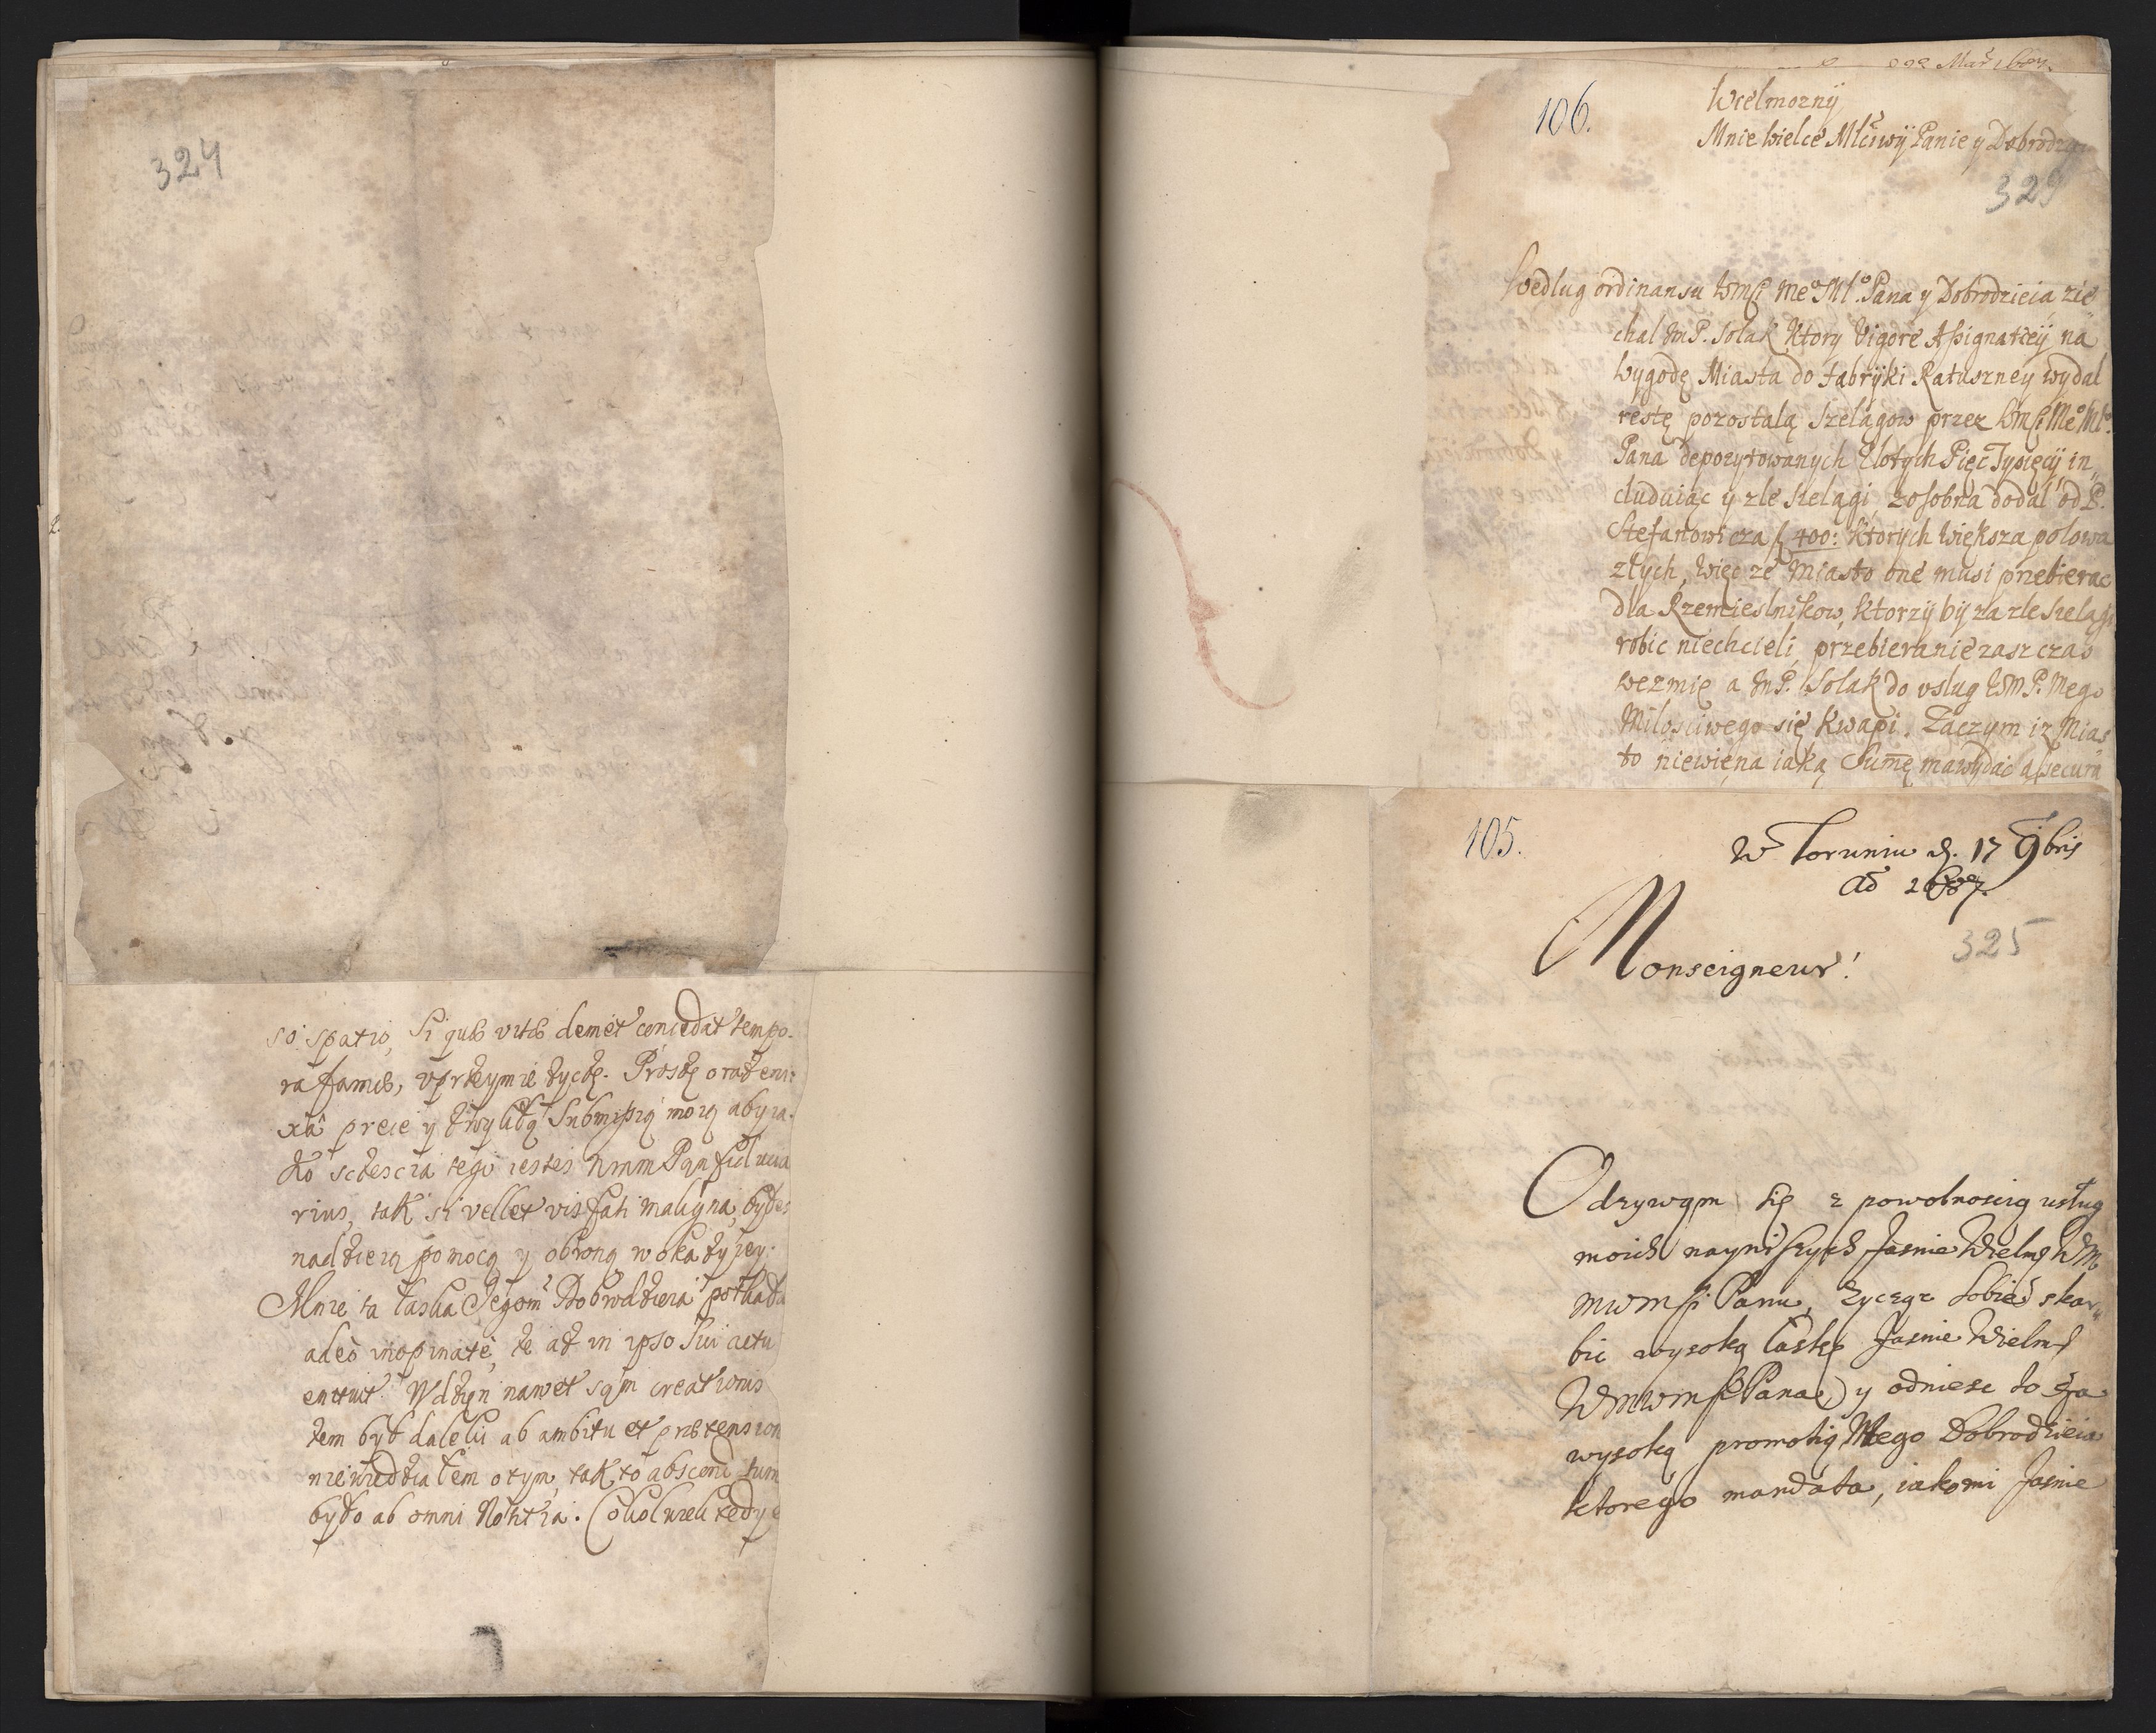 324
so spatio, si quae vitae demet concedat tempo-
ra famae, uprzeymie życzę. Proszę oraz eni-
xa prece y zwykłą Submissią moią aby ia-
ko sczęścia tego iestes WMM Pan fiduciarius
rius, tak si vellet vis fati maligna, byłes
nadzieią pomocą y obroną w okazyiey.
Mnie ta łaska Jegom Dobrodzieia potkała
adeo inopinate, że aż in ipso sui actu
emicuit. Wdzięn nawet sąm creationis
żem był daleki ab ambitu et praetension
niewiedziałem otym, tak to absconditum
było ab omni Notitia. Cokolwiek tedy
106.
Wielmozny
Mnie Wielce Młciwy Panie y Dobrodzieiu
329
Według ordinansu WmP Me° Ml° Pana y Dobrodzieia zie
chal ImP. Solak ktory Vigore Assignatiey na
wygodę Miasta do fabryki Ratuszney wydal
restę pozostalą Szelągow przez WmP Me° Ml°
Pana depozytowanych Zlotych Pięc Tysięcy in„
cluduiąc y zle szelągi, zosobna dodal od P.
Stefanowicza f 400: ktorych większa polowa
złych, więc ze Miasto one musi przebierac
dla Rzemieslnikow, ktorzy by za zle szelągi
robic niechcieli, przebieranie zasz czas
wezmie a ImP. Solak do uslug WMP. Mego
Milosciwego się kwapi. Zaczym iz Mias
to niewie na iaką Summę ma wydac assecura
105.
W Toruniu d. 17 9bris
Ao 1687.
325
Monseigneur!
Odzywąm się z powolnoscią usług
moich naynizszych Jasnie Wielmo WM
MWMP Panu, życząc sobie skar„
bic wysoką łaskę Jasnie Wielmo
WMWMP Pana y odniesc to za
wysoką promotią Mego Dobrodzieia
ktorego mandata, iakomi Jasnie